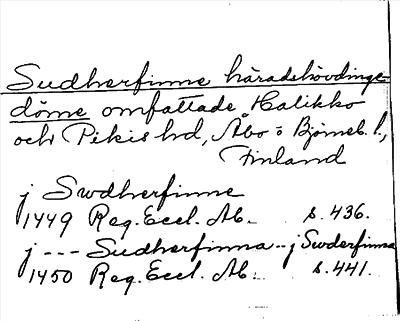 Sudherfinne häradshövdinge-
döme omfattade Halikko
och Pikis hd, Åbo o Björneb. l.,
Finland
j Swdherfinne
1449 Reg. Eccl. Ab. s. 436.
j --- Sudherfinna -- j Swderfinna
1450 Reg. Eccl. Ab. s. 441.